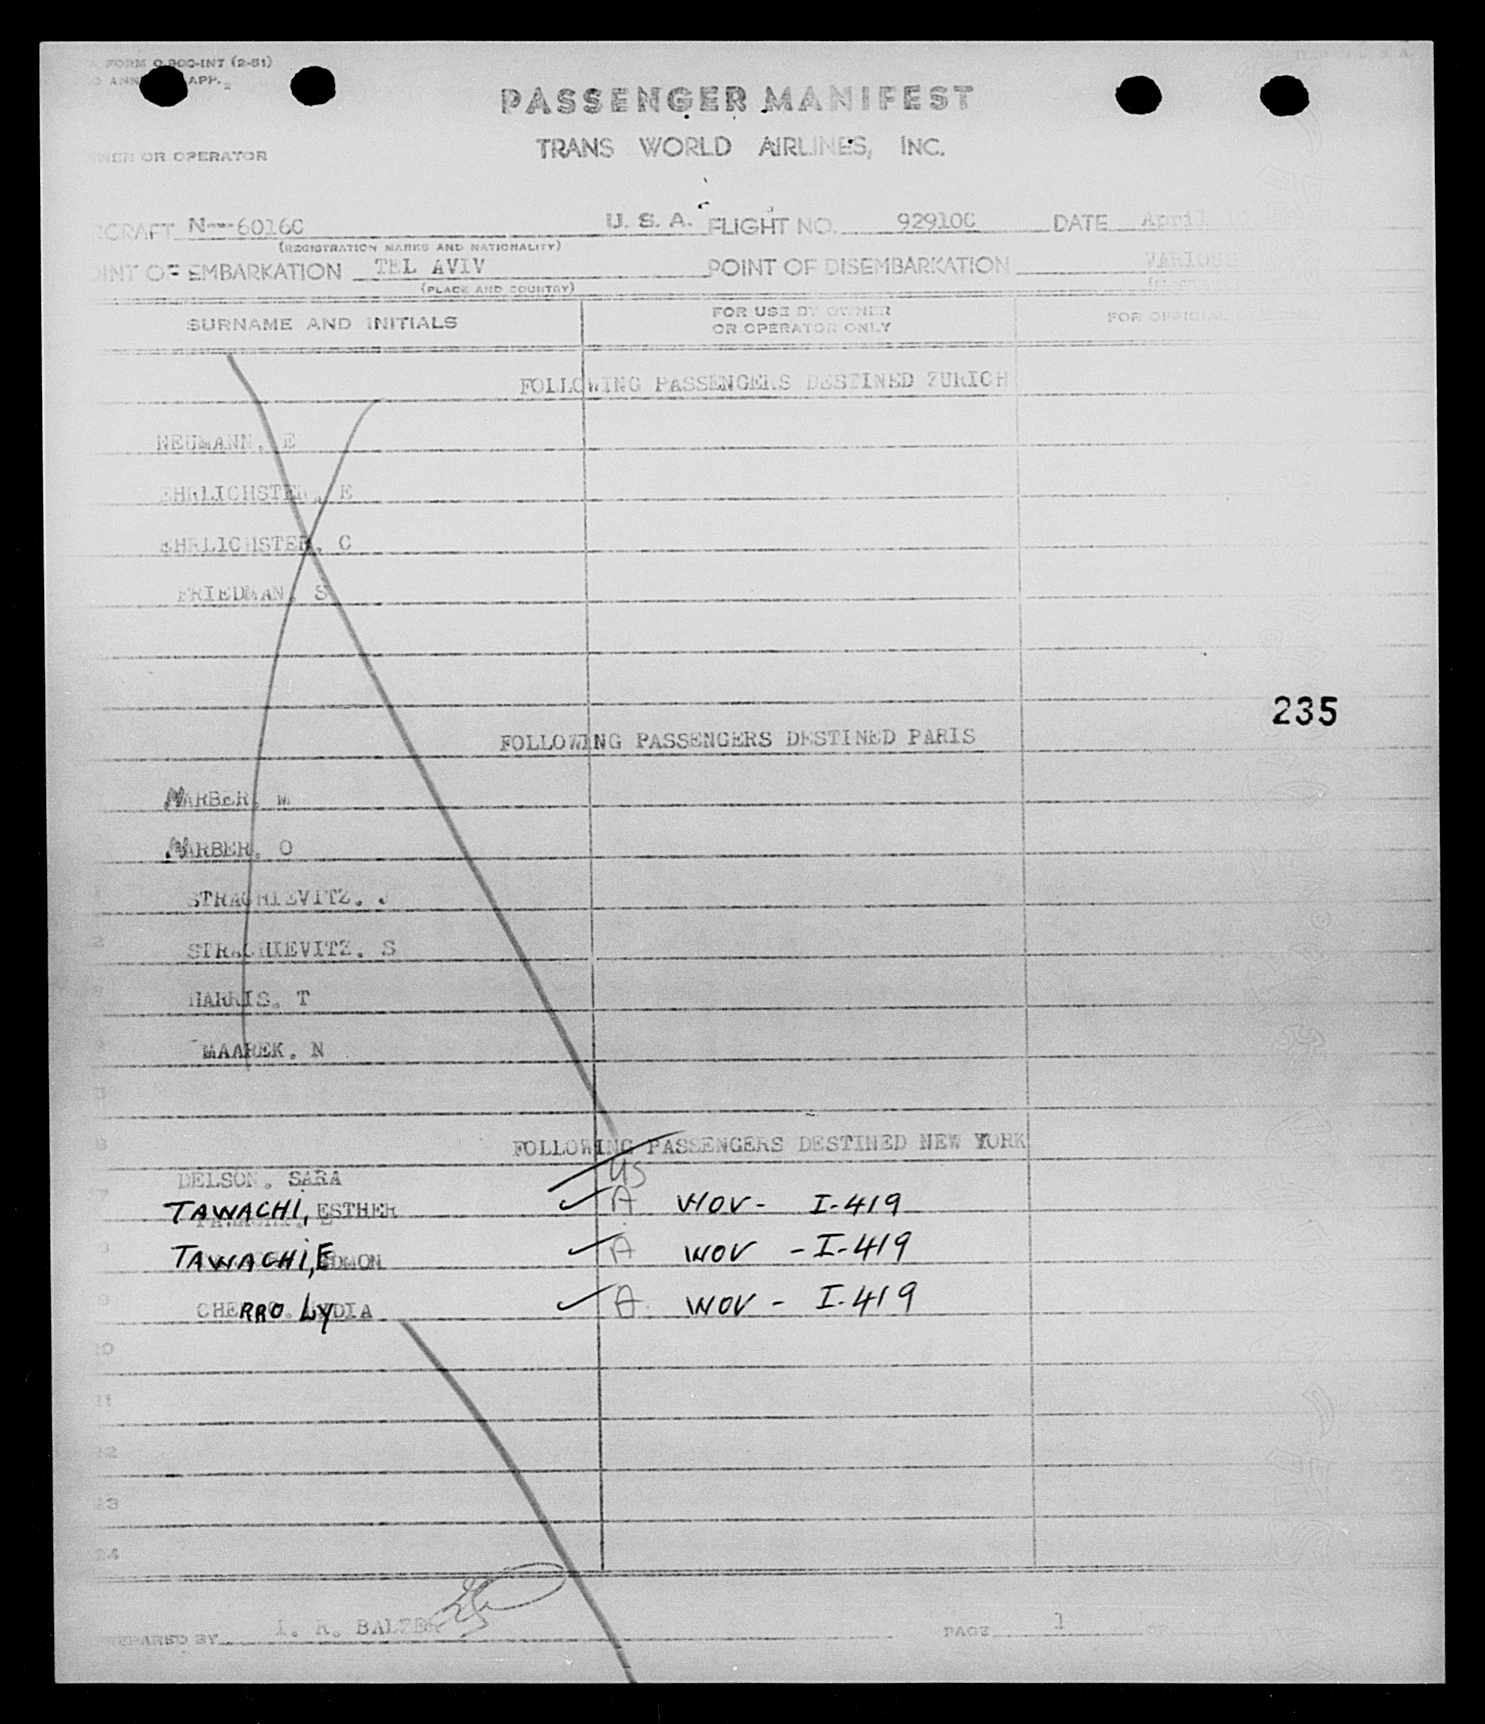 FORM O 900-INT (2-51)
APP.
PASSENGER MANIFEST
TRANS WORLD AIRLINES, INC.
OR OPERATOR
N---60160 U. S. A. FLIGHT NO. 929100 DATE April
(REGISTRATION MARKS AND NATIONALITY)
OF EMBARKATION TEL AVIV POINT OF DISEMBARKATION VARIOUS
(PLACE AND COUNTRY)
SURNAME AND INITIALS FOR USE BY OWNER OR OPERATOR ONLY FOR OFFICIAL
FOLLOWING PASSENGERS DESTINED ZURICH
NEUMANN, E
EHRLICHSTER, E
EHRLICHSTER, C
FRIEDMAN, S
235
FOLLOWING PASSENGERS DESTINED PARIS
NARBER, M
NARBER, O
STRACHIEVITZ. J
STRACHIEVITZ. S
HARRIS. T
MAAREK. N
FOLLOWING PASSENGERS DESTINED NEW YORK
DELSON. SARA US
TAWACHI, ESTHER A WOV- I-419
TAWACHI, EDMON A WOV - I-419
CHERRO LYDIA A WOV - I-419
20
21
22
23
24
PREPARED BY I. R. BALTER PAGE 1 OF